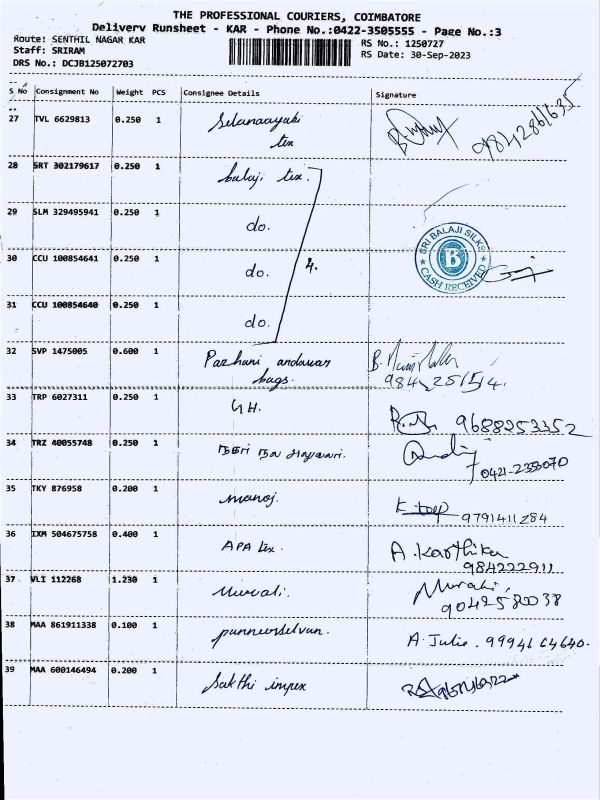 THE PROFESSIONAL COURIERS, COIMBATORE
Delivery Runsheet - KAR - Phone No.:0422-3505555 - Page No.:3
Route: SENTHIL NAGAR KAR
Staff: SRIRAM
DRS No.: DCJB125072703
RS No.: 1250727
RS Date: 30-Sep-2023
S No Consignment No Weight PCS Consignee Details Signature
27 TVL 6629813 0.250 1 Selanaayaki
tex
9842861635
28 SRT 302179617 0.250 1 balaji tex.
29 SLM 329495941 0.250 1 do.
30 CCU 100854641 0.250 1 do. 4.
SRI BALAJI SILKS
B
CASH RECEIVED
31 CCU 100854640 0.250 1 do.
32 SVP 1475005 0.600 1 Pazhani andavar
bags.
33 TRP 6027311 0.250 1 GH. 9688253352
34 TRZ 40055748 0.250 1
35 TKY 876958 0.200 1 manoj. 9791411284
36 IXM 504675758 0.400 1 APA tex. A. Karthika
984222911
37 VLI 112268 1.230 1 Murali. Murali,
9042580038
38 MAA 861911338 0.100 1 pannerselvan. A. Julie. 9994664640.
39 MAA 600146494 0.200 1 Sakthi impex